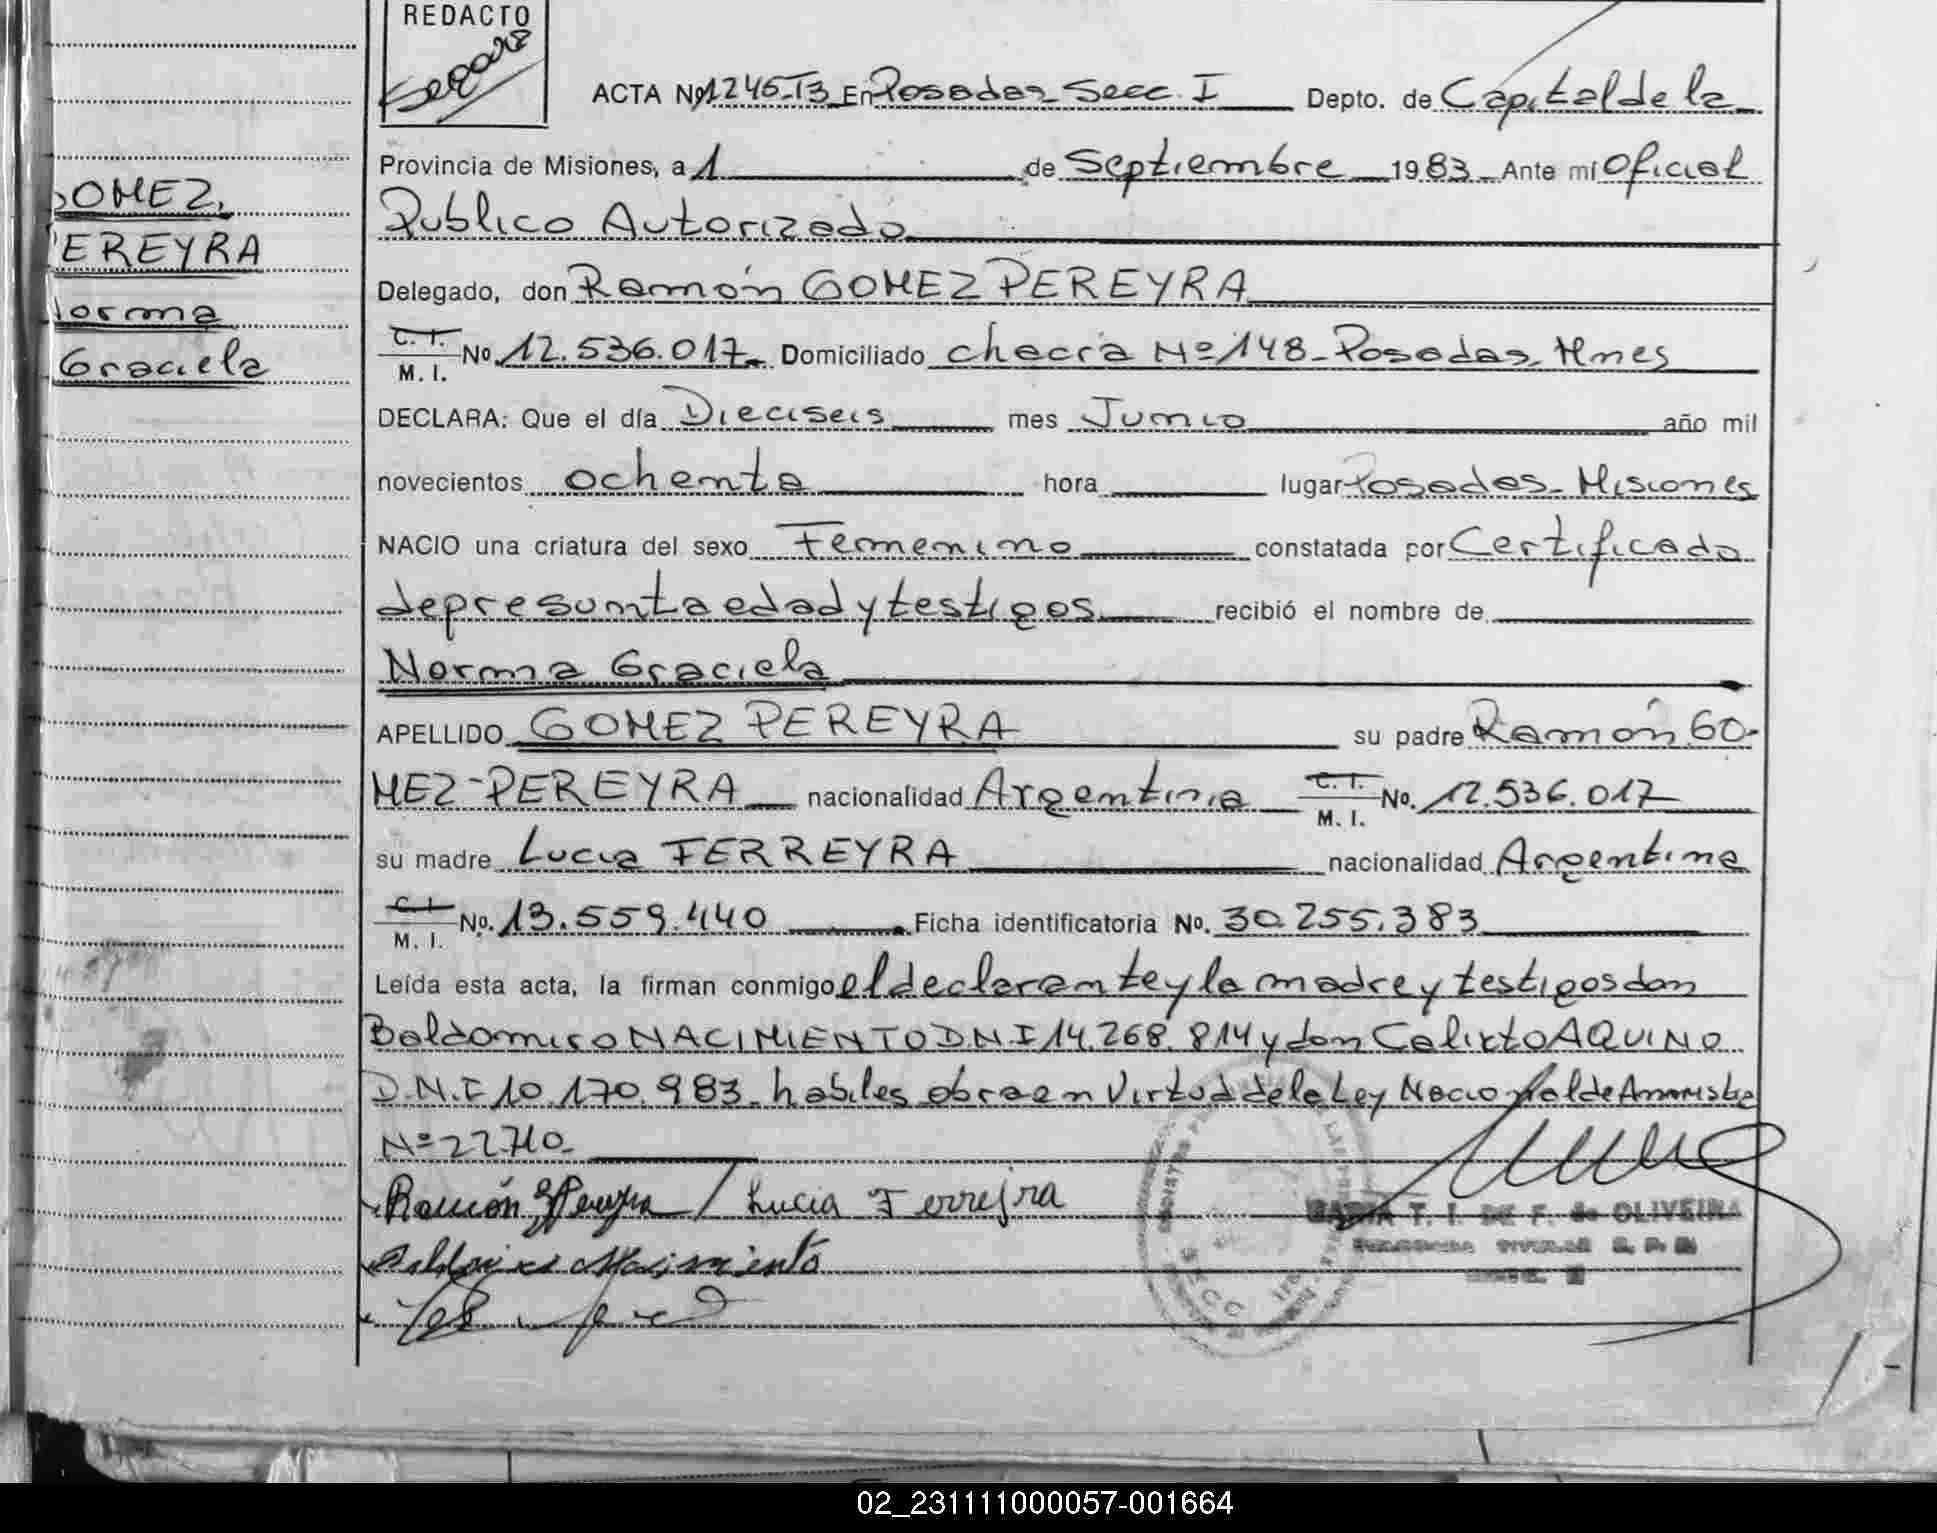 REDACTO
ACTA Nº 1245-T3 En Posadas Secc. I Depto. de Capital de la
Provincia de Misiones, a 1 de Septiembre 1983 Ante mí Oficial
Publico Autorizado
Delegado, don Ramón GOMEZ PEREYRA
C. I. M. I. No. 12.536.017 Domiciliado chacra Nº 148-Posadas-Mnes
DECLARA: Que el día Dieciseis mes Junio año mil
novecientos ochenta hora lugar Posadas-Misiones
NACIO una criatura del sexo Femenino constatada por Certificado
de presunta edad y testigos recibió el nombre de
Norma Graciela
APELLIDO GOMEZ PEREYRA su padre Ramón GO-
MEZ-PEREYRA nacionalidad Argentina C. I. M. I. No. 12.536.017
su madre Lucia FERREYRA nacionalidad Argentina
C. I. M. I. No. 13.559.440 Ficha identificatoria No. 30.255.383
Leída esta acta, la firman conmigo el declarante y la madre y testigos don
Baldomiro NACIMIENTO D.N.I 14.268.814 y don Calixto AQUINO
D.N.I 10.170.983- habiles obra en Virtud de la Ley Nacional de Amnistia
Nº 22710-
Ramón G Pereyra / Lucia Ferreyra
Nacimiento
T. I. DE F. de OLIVEIRA
GOMEZ,
PEREYRA
Norma
Graciela
02_231111000057-001664